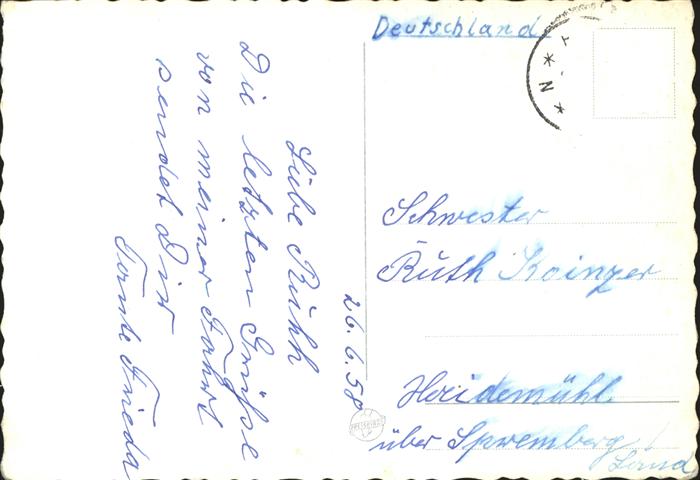 26.6.58
Liebe Ruth
Die letzten Grüße
von meiner Fahrt
sendet Dir
Tante Frieda
Deutschland
Schwester
Ruth
Heidemühl
über Spremberg
Land
* N * T